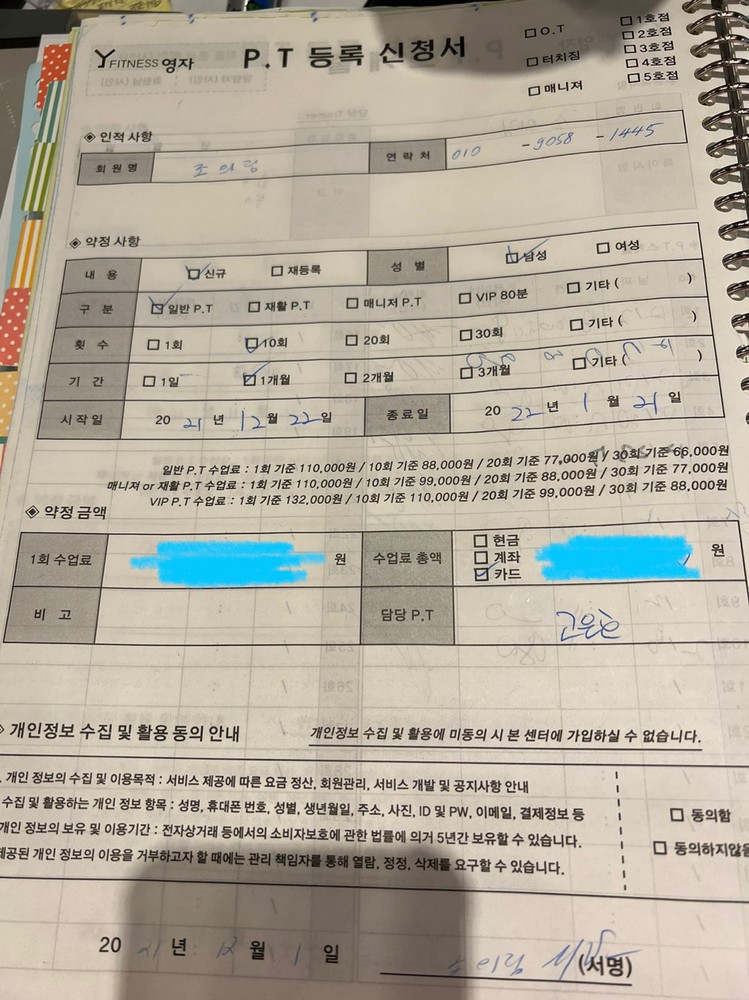 Y FITNESS 영자
P.T 등록 신청서
□ O.T
□ 터치짐
□ 매니져
□ 1호점
□ 2호점
□ 3호점
□ 4호점
□ 5호점
◈ 인적 사항
회 원 명 연 락 처 010 - 9058 - 1445
◈ 약정 사항
내 용 ☑ 신규 □ 재등록 성 별 ☑ 남성 □ 여성
구 분 ☑ 일반 P.T □ 재활 P.T □ 매니저 P.T □ VIP 80분 □ 기타 ( )
횟 수 □ 1회 ☑ 10회 □ 20회 □ 30회 □ 기타 ( )
기 간 □ 1일 ☑ 1개월 □ 2개월 □ 3개월 □ 기타 ( )
시 작 일 20 21 년 12 월 22 일 종 료 일 20 22 년 1 월 21 일
일반 P.T 수업료 : 1회 기준 110,000원 / 10회 기준 88,000원 / 20회 기준 77,000원 / 30회 기준 66,000원
매니져 or 재활 P.T 수업료 : 1회 기준 110,000원 / 10회 기준 99,000원 / 20회 기준 88,000원 / 30회 기준 77,000원
VIP P.T 수업료 : 1회 기준 132,000원 / 10회 기준 110,000원 / 20회 기준 99,000원 / 30회 기준 88,000원
◈ 약정 금액
1회 수업료 원 수업료 총액 □ 현금
□ 계좌
☑ 카드 원
비 고 담당 P.T 고은호
◈ 개인정보 수집 및 활용 동의 안내 개인정보 수집 및 활용에 미동의 시 본 센터에 가입하실 수 없습니다.
. 개인 정보의 수집 및 이용목적 : 서비스 제공에 따른 요금 정산, 회원관리, 서비스 개발 및 공지사항 안내
수집 및 활용하는 개인 정보 항목 : 성명, 휴대폰 번호, 성별, 생년월일, 주소, 사진, ID 및 PW, 이메일, 결제정보 등
개인 정보의 보유 및 이용기간 : 전자상거래 등에서의 소비자보호에 관한 법률에 의거 5년간 보유할 수 있습니다.
제공된 개인 정보의 이용을 거부하고자 할 때에는 관리 책임자를 통해 열람, 정정, 삭제를 요구할 수 있습니다.
□ 동의함
□ 동의하지않음
20 21 년 12 월 1 일 (서명)